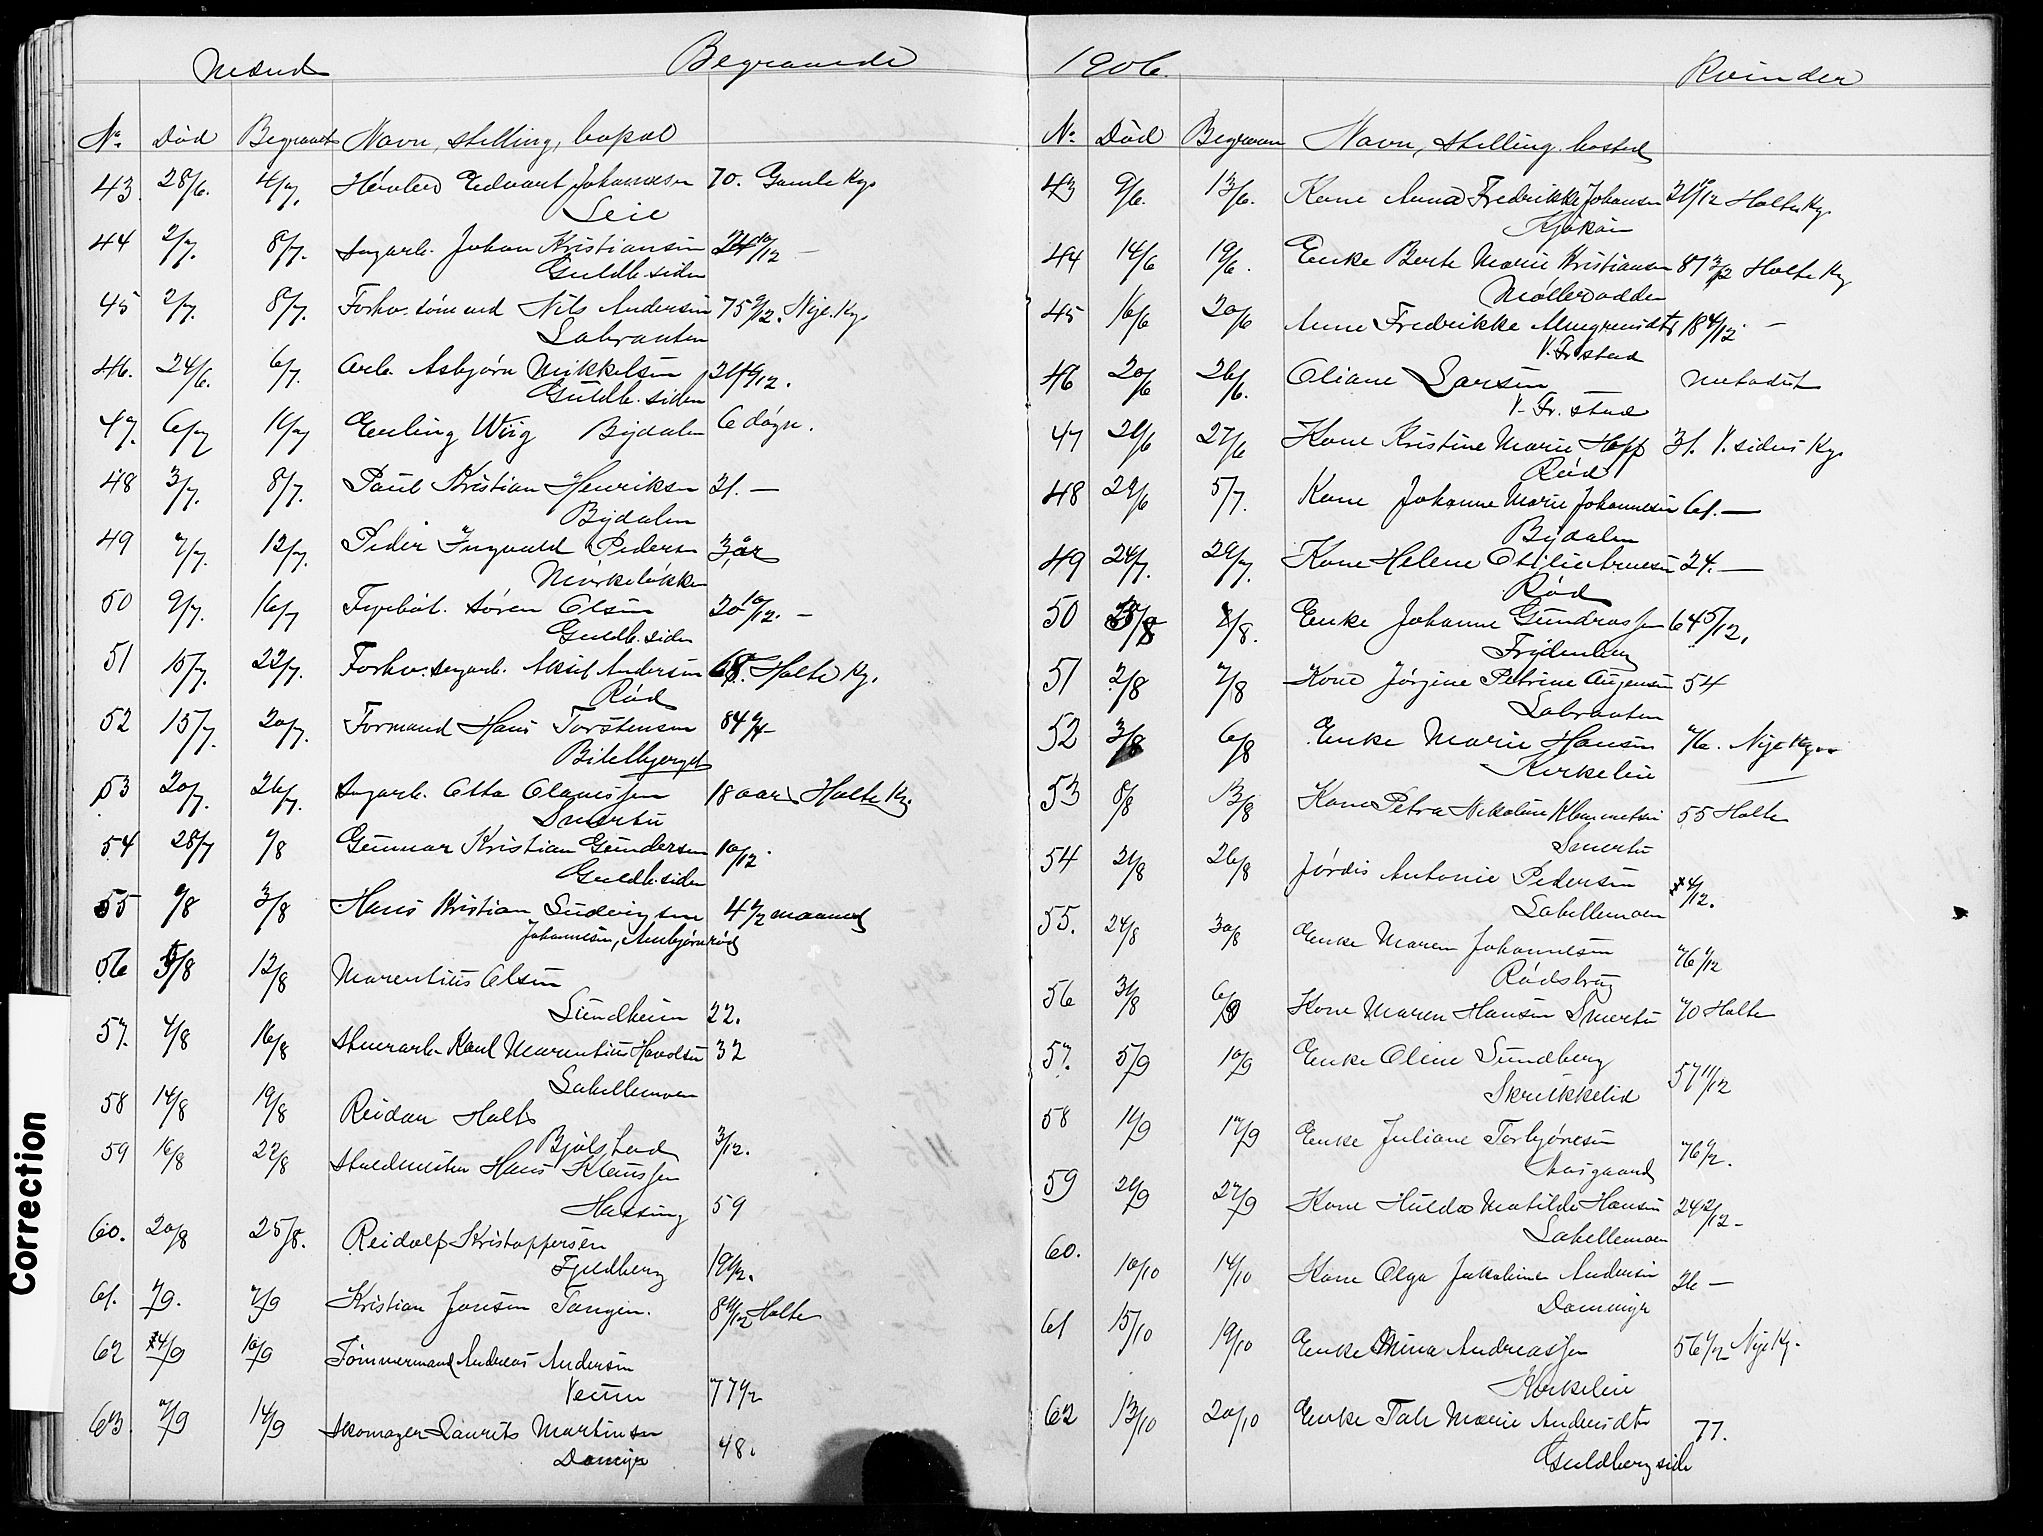 Mænd Begravede
No Død Begravet Navn, stilling, bopæl
43 28/6. 4/7. Edvart Johannesen 70. Gamle Kg.
Leie
44 2/7. 8/7. Sagarb. Johan Kristiansen 24 10/12 —
Guldb.siden
45 2/7. 8/7. Forhv. sømand Nils Andersen 75 9/12. Nye Kg.
Labranten
46. 24/6. 6/7. Arb. Asbjørn Mikkelsen
Guldb. siden
47. 6/7 10/7 Erling Wiig Bydalen 6 døgn.
48 3/7. 8/7. Paul Kristian Henriksen 31. —
Bydalen
49 7/7. 12/7. Peder Ingvald Pedersen 3 år
Mørkeløkken
50 9/7. 16/7 Fyrbøt. Søren Olsen 20 10/12. —
Guldb. siden
51 15/7. 22/7. Forhv. sagarb. Aksel Andersen 68. Holte Kg.
Rød
52 15/7. 20/7. Formand Hans Torstensen 84
53 20/7. 26/7. Sagarb. Otto Olaussen 18 aar Holte Kg.
Smertu
54 28/7 1/8 Gunnar Kristian Gundersen 10/12.
Guldb. siden
55 1/8 3/8 Hans Kristian Ludvigsen 4 1/2 maaned
Johannesen, Ambjørnrød
56 5/8 12/8 Marentius Olsen
Sundheim 22.
57. 7/8 16/8 Stuerarb. Karl Marentius 32
Labellemoen
58 14/8 19/8 Reidar Holt
Bjølstad 3/12.
59 16/8 22/8 Hans Klaussen
Hassing 59
60. 20/8 25/8. Reidolf Kristoffersen
Fjeldberg 19 1/2.
61. 1/9. 7/9 Kristian Jensen Tangen. 8 11/12 Holte
62 4/9 10/9 Tømmermand Andreas Andersen
Veum 77 1/2
63. 7/9 14/9 Skomager Laurits Martinsen
Dammyr 48.
1906. Kvinder
No. Død Begraven Navn, stilling. bosted
43 9/6. 13/6. Kone Anna Fredrikke Johansen Holte Kg.
Kjøkøen
44 14/6 19/6. Enke Berte Marie Kristiansen 87 Holte Kg
Møllerodden
45 16/6 20/6 Anne Fredrikke Almgrensdtr 18 4/12. —
V. Fr.stad
46 20/6 26/6. Oliane Larsen Metodist
V. Fr. stad
47 21/6 27/6 Kone Kristine Marie Hopp 31. V. sidens Kg.
Rød
48 29/6 5/7. Kone Johanne Marie Johannesen 61. —
Bydalen
49 24/7. 29/7. Kone Helene Otilie Arnesen 24. —
Rød
50 /8 8/8. Enke Johanne Gundrossen 64 5/12.
Frydenberg
51 2/8 7/8 Kone Jørgine Petrine Augensen 54
Labranten
52 3/8 6/8 Enke Marie Hansen 76. Nye Kg.
Kirkelien
53 8/8 13/8 Kone Petra Nikoline Klemmetsen 55 Holte
Smertu
54 21/8 26/8 Jørdis Antonie Pedersen 4/12.
Labellemoen
55. 24/8 30/8 Enke Maren Johannesen 76 1/12
Rødsbrug
56 31/8 6/9 Kone Maren Hansen Smertu 70 Holte
57. 5/9 10/9 Enke Oline Sundberg 57 11/12
Skrikkelid
58 11/9 17/9 Enke Juliane Torbjørnsen 76 1/2.
Aasgaard
59 21/9 27/9 Kone Hulda Matilde Hansen 24 2/12 —
Labellemoen
60. 10/10 14/10 Kone Olga Jakobine Andersen 26 —
Dammyr
61 15/10 19/10 Enke Mina Andreassen 56 1/2 Nye Kg.
Kirkelien
62 13/10 20/10 Enke Marie Andersdtr 77.
Guldbergside
Correction